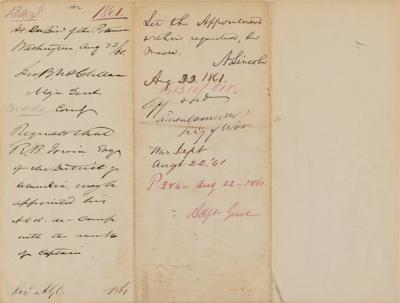 1861.
Hd Qrs Div. of the Potomac
Washington Aug 22/61.
Geo B McClellan
Maj Genl
Comdg
Requests that
R.B. Irwin Esq
of the District of
Columbia may be
appointed his
Aid-de-Camp
with the rank
of Captain
Rec'd A.G.O. 1861
Let the Appointment
within requested, be
made.
A. Lincoln
Aug. 22. 1861.
Approved
Simon Cameron
Sec'y of War
War Dept
Augt 22. '61
P 244 - Aug 22 - 1861